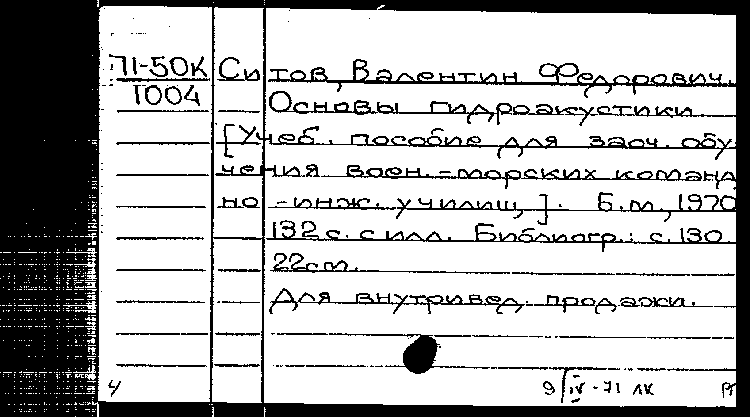 71-50К Ситов, Валентин Федорович.
1004 Основы гидроакустики.
[Учеб. пособие для заоч. обу-
чения воен.-морских команд
но-инж. училищ,]. Б.м., 1970
132 с. с илл. Библиогр.: с. 130
22 cm.
Для внутривед. продажи.
4 9/IV-71 ЛК